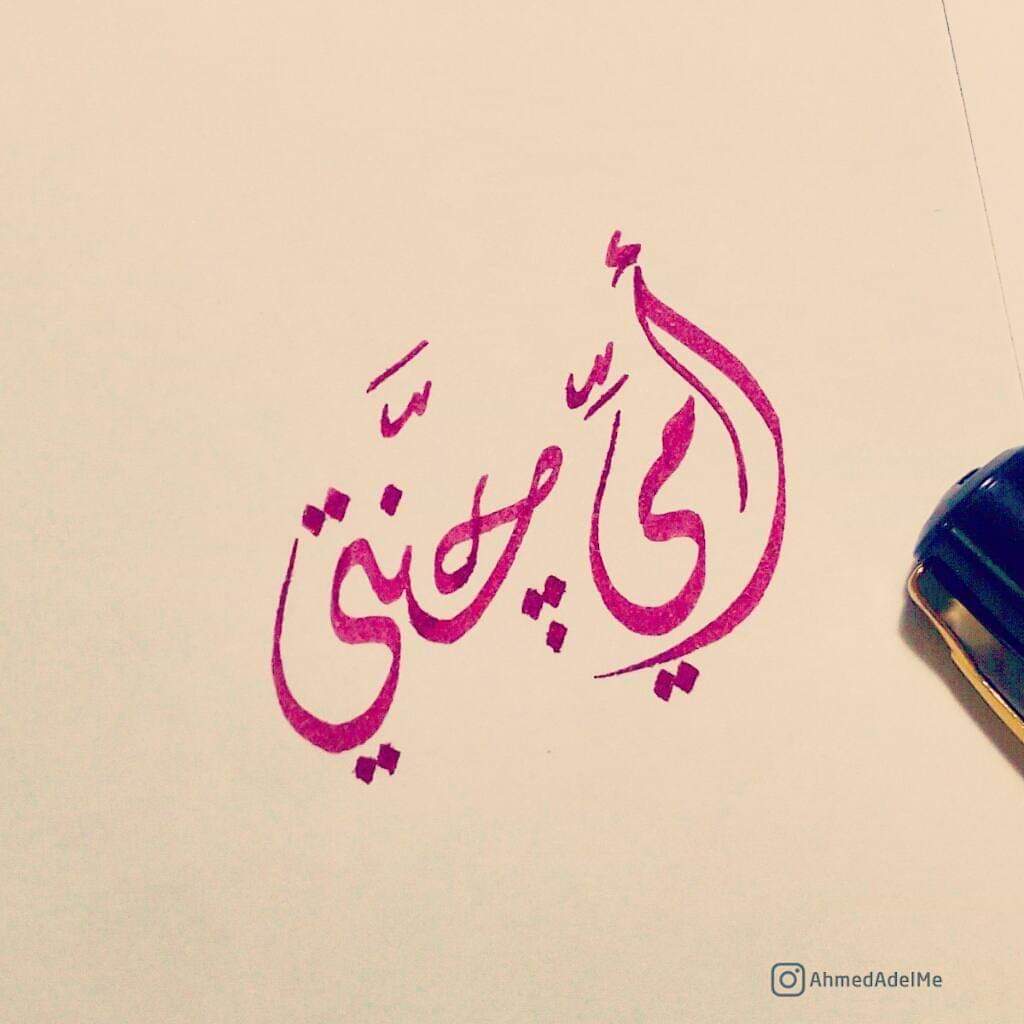 أمِّي چنَّتي
AhmedAdelMe